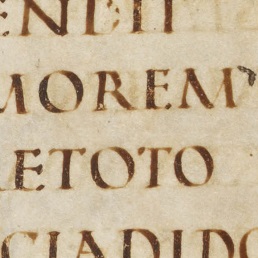 ENDIT
MOREM
ETOTO
CIADIDO